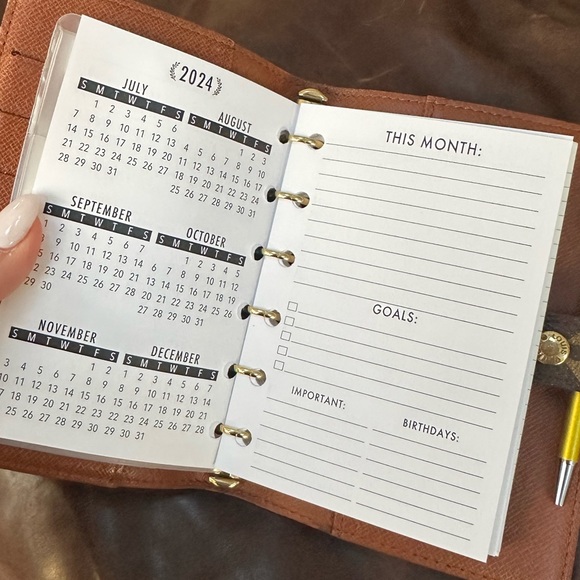 2024
JULY
S M T W T F S
1 2 3 4 5 6
7 8 9 10 11 12 13
14 15 16 17 18 19 20
21 22 23 24 25 26 27
28 29 30 31
AUGUST
S M T W T F S
1 2 3
4 5 6 7 8 9 10
11 12 13 14 15 16 17
18 19 20 21 22 23 24
25 26 27 28 29 30 31
SEPTEMBER
S M T W T F S
1 2 3 4 5 6 7
9 10 11 12 13 14
16 17 18 19 20 21
22 23 24 25 26 27 28
29 30
OCTOBER
S M T W T F S
1 2 3 4 5
6 7 8 9 10 11 12
13 14 15 16 17 18 19
20 21 22 23 24 25 26
27 28 29 30 31
NOVEMBER
S M T W T F S
1 2
3 4 5 6 7 8 9
10 11 12 13 14 15 16
18 19 20 21 22 23
25 26 27 28 29 30
DECEMBER
S M T W T F S
1 2 3 4 5 6 7
8 9 10 11 12 13 14
15 16 17 18 19 20 21
22 23 24 25 26 27 28
29 30 31
THIS MONTH:
GOALS:
IMPORTANT:
BIRTHDAYS: